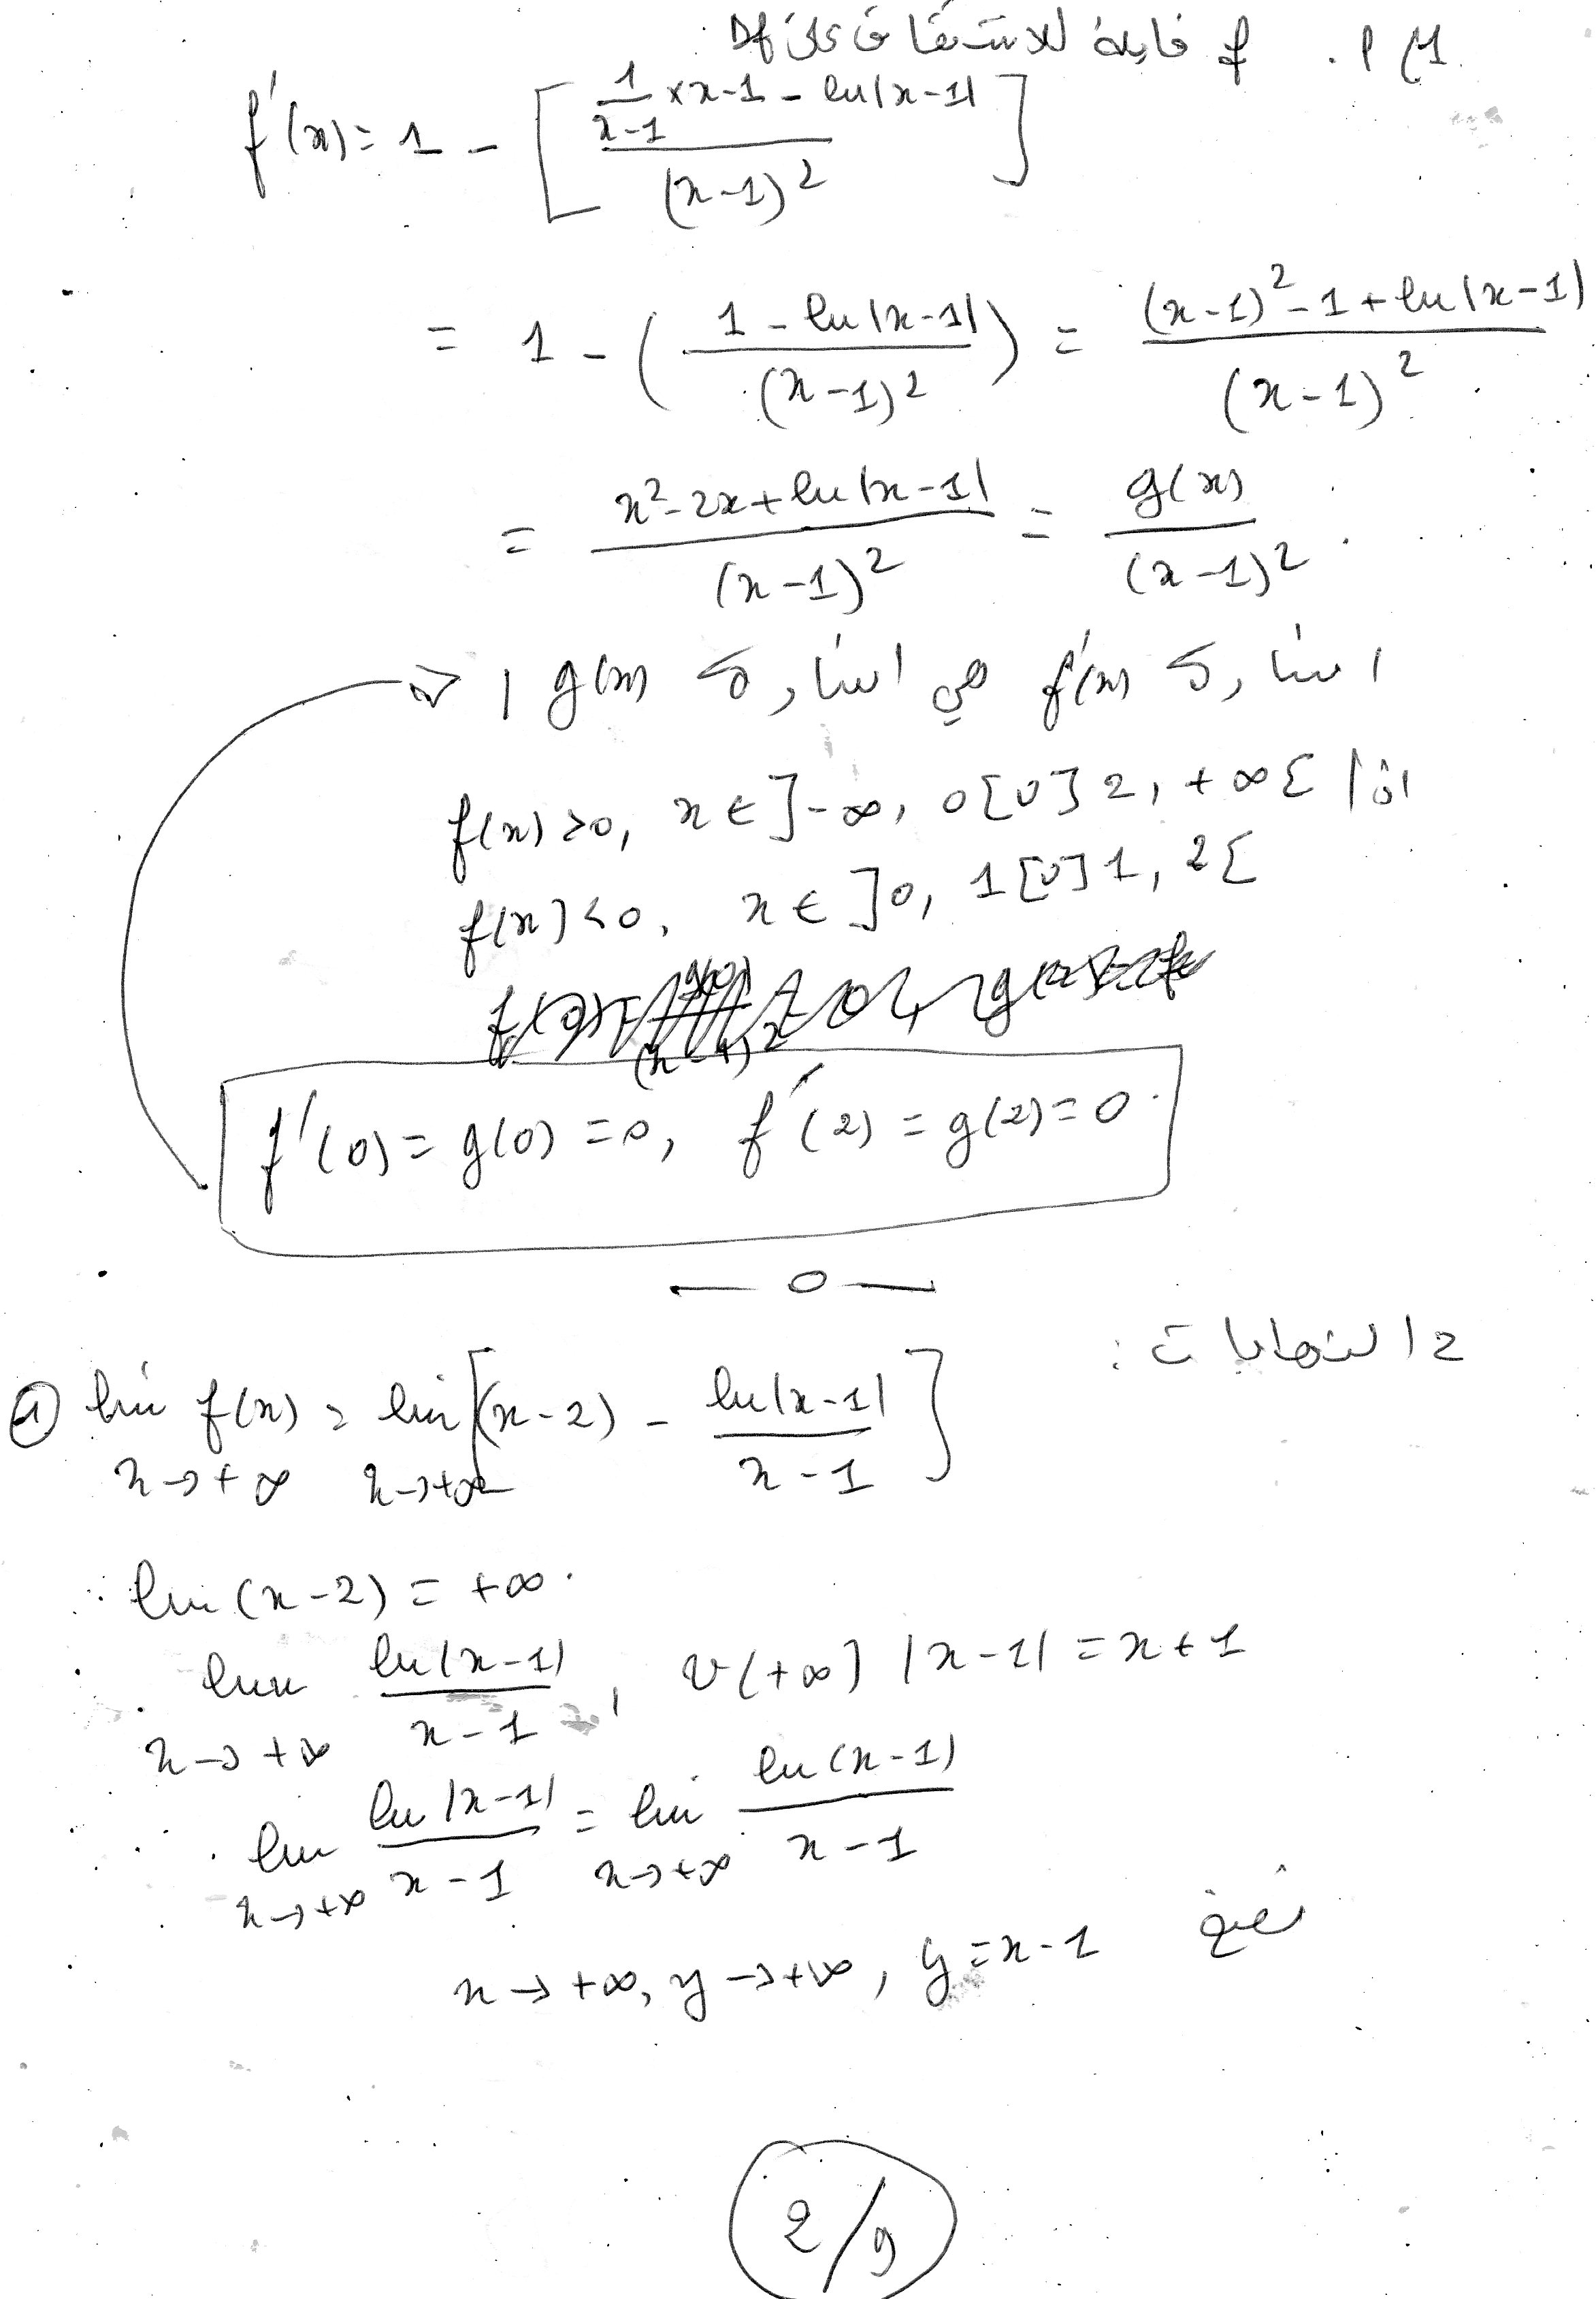 1) M. f قابلة للاشتقاق على Df
f'(x) = 1 - [ (1/(x-1) × x-1 - ln|x-1|) / (x-1)² ]
= 1 - ( (1 - ln|x-1|) / (x-1)² ) = ((x-1)² - 1 + ln|x-1|) / (x-1)²
= (x² - 2x + ln|x-1|) / (x-1)² = g(x) / (x-1)² .
اشارة f'(x) هي اشارة g(x)
اذا f(x) > 0, x ∈ ]-∞, 0[ ∪ ]2, +∞[
f(x) < 0, x ∈ ]0, 1[ ∪ ]1, 2[
f'(0) = g(0) = 0, f'(2) = g(2) = 0.
2) النهايات :
① lim f(x) = lim [(x-2) - ln|x-1| / (x-1)]
x→+∞ x→+∞
lim (x-2) = +∞.
lim ln|x-1| / (x-1), v(+∞) |x-1| = x+1
x→+∞
lim ln|x-1| / (x-1) = lim ln(x-1) / (x-1)
x→+∞ x→+∞
نضع y = x-1, x→+∞, y→+∞
2/9